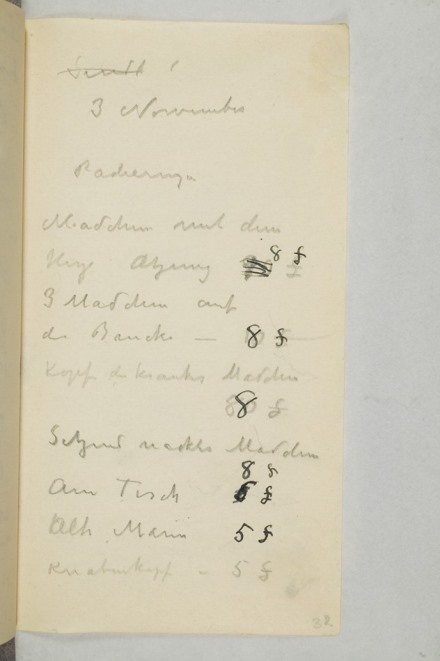 3 November
Radierungen
Mädchen mit dem
Atzung 8 £
3 Mädchen auf
der Brücke — 8 £
Kopf d. kranken Mädchen
8 £
Sitzend nacktes Mädchen
8 £
Am Tisch £
Alter Mann 5 £
Knabenkopf - 5 £
32